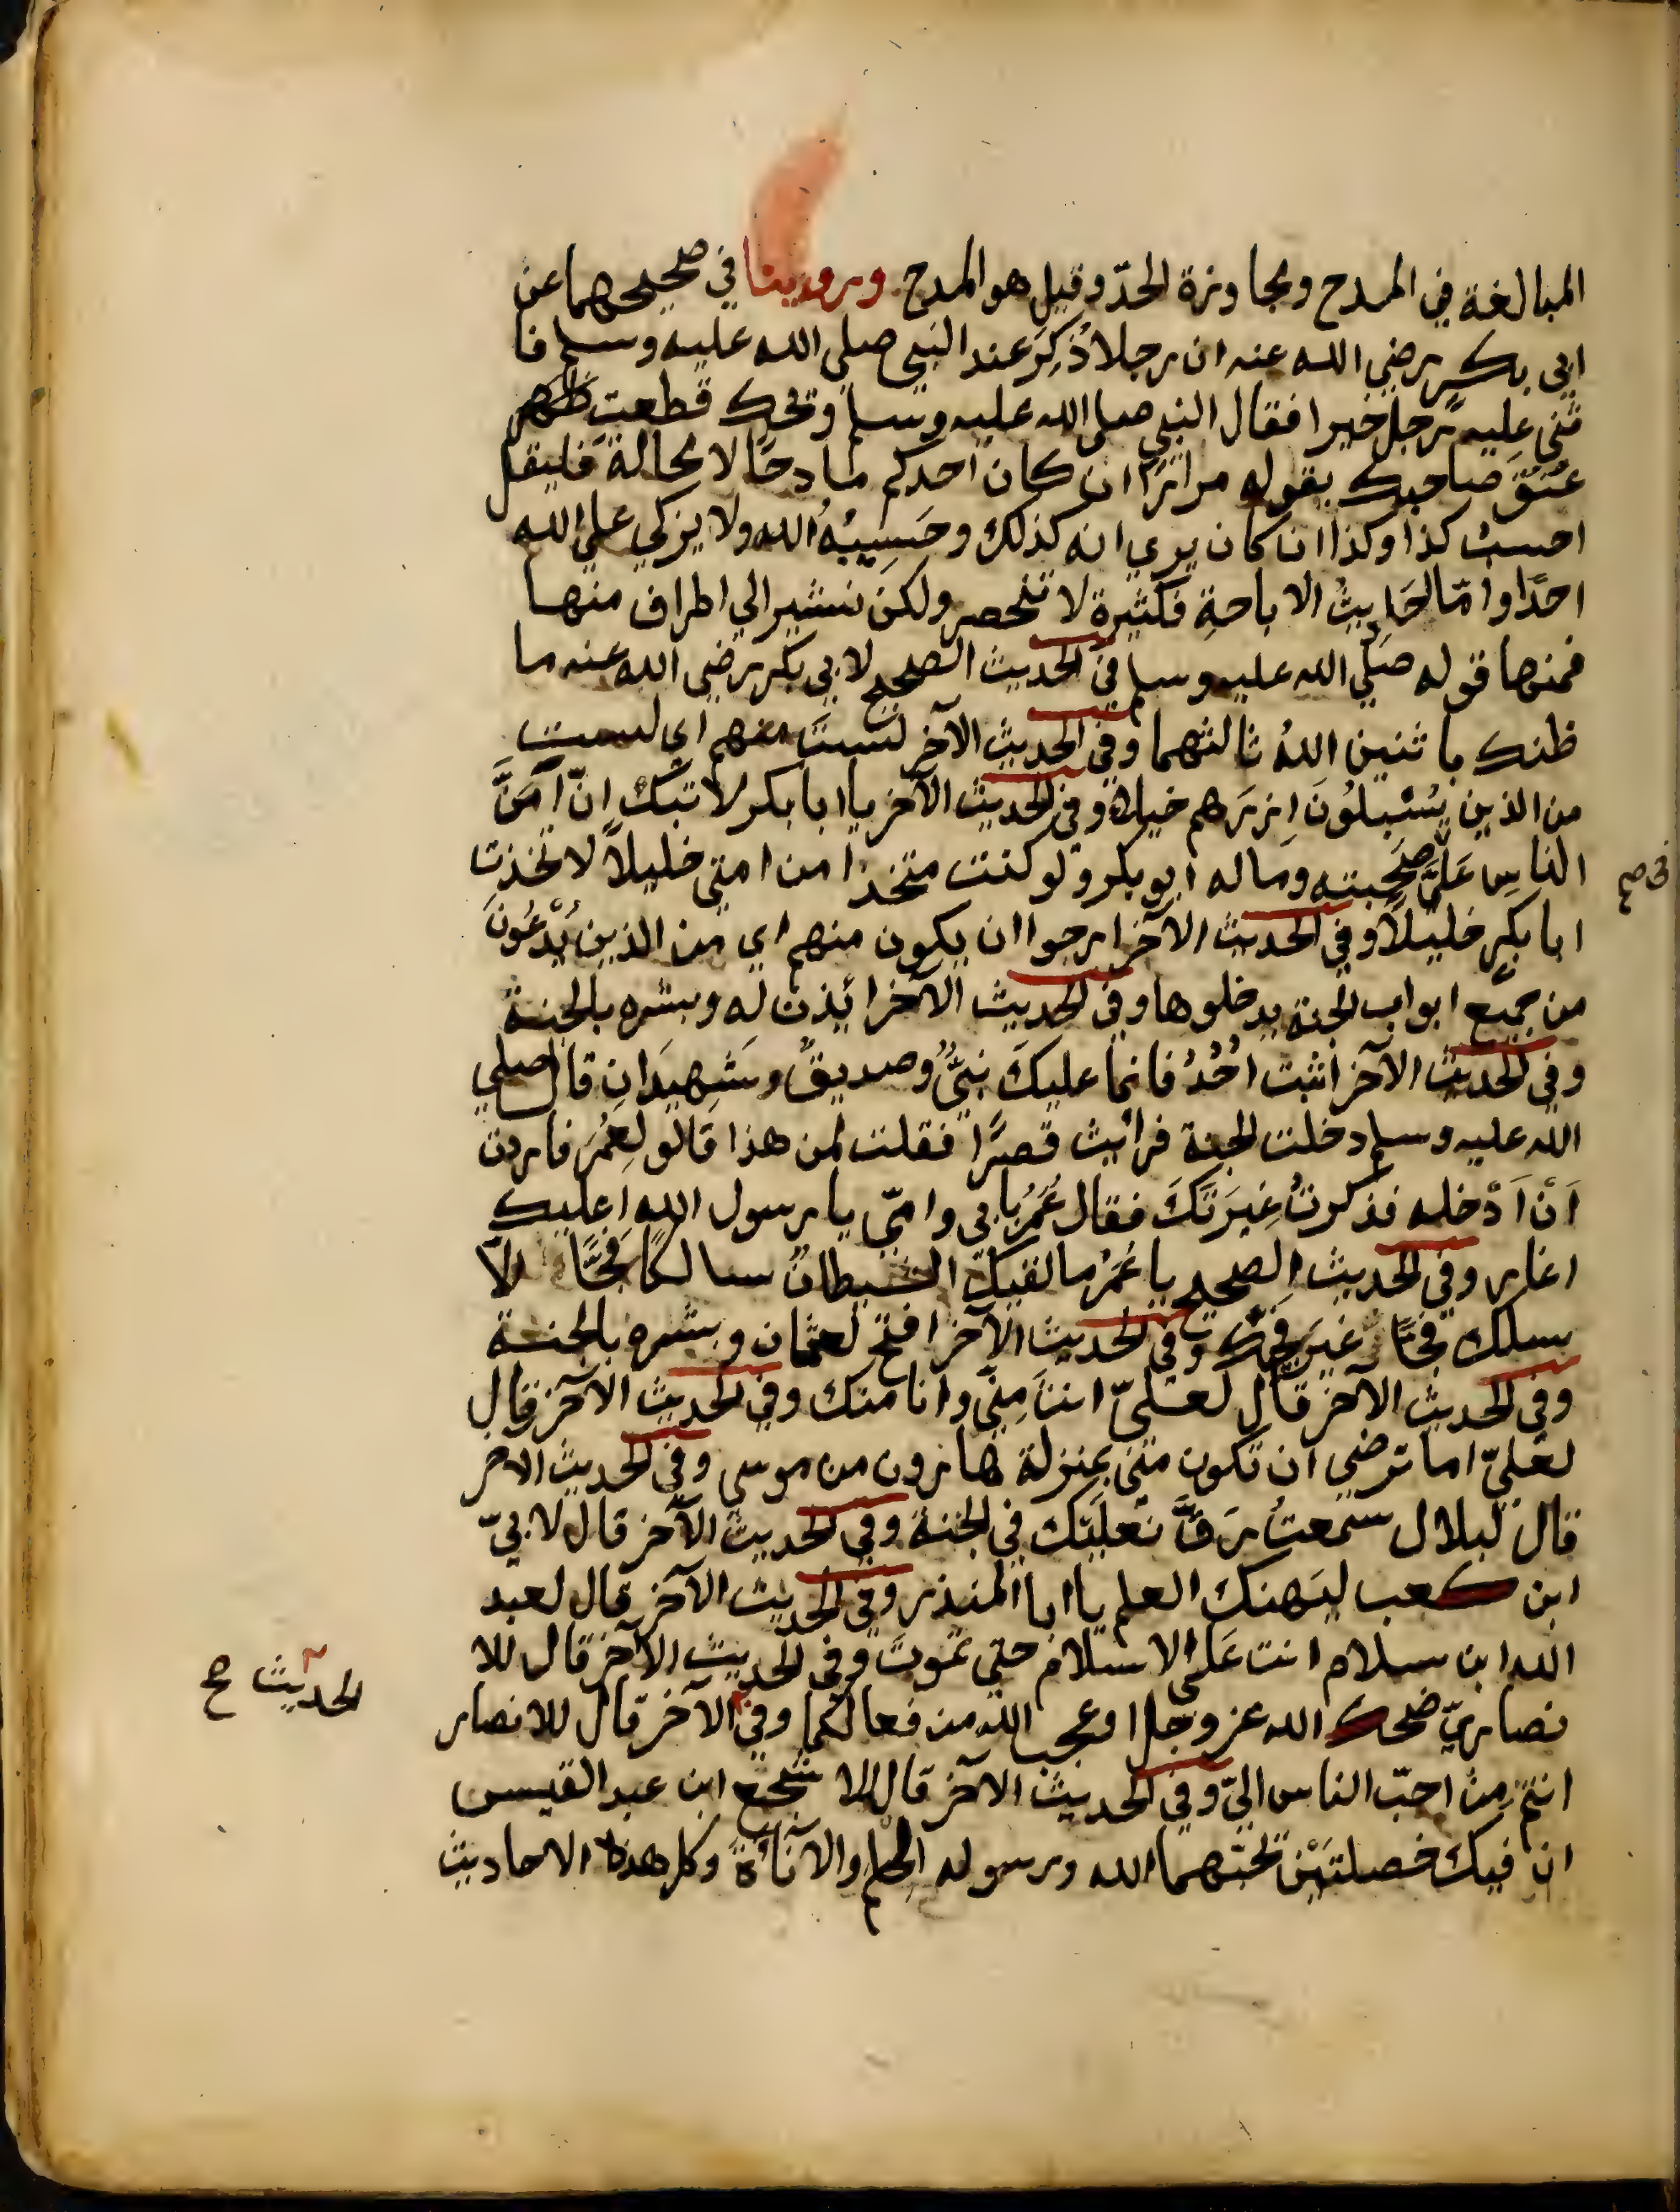 المبالغة في المدح ومجاوزة الحدّ وقيل هو المدح وروينا في صحيحهما عن
ابي بكر رضي الله عنه ان رجلا ذُكِرَ عند النبي صلى الله عليه وسلم فا
ثني عليه رجل خيرا فقال النبي صلى الله عليه وسلم ويحك قطعت ظهر
عنق صاحبك يقوله مرارًا ان كان احدكم مادحًا لا محالة فليقل
احسب كذا وكذا ان كان يري انه كذلك وحسيبُهُ الله ولا يزكي علي الله
احدًا وامّا احاديثُ الاباحةِ فكثيرة لا تنحصر ولكن نشير الي اطراف منها
فمنها قوله صلي الله عليه وسلم في الحديث الصحيح لابي بكر رضي الله عنه ما
ظنك باثنين اللهُ ثالثهما وفي الحديث الآخر لستَ منهم اي لست
من الذين يُسْبِلُونَ ازرَهم خيلاء وفي الحديث الآخر يا ابا بكر لا تبك انّ اَمَنَّ
الناسِ عَلَيَّ صحبته وماله ابو بكر ولو كنت متخذا من امتي خليلاً لاتخذت
في ص
ابا بكرٍ خليلاً وفي الحديث الآخر ارجوا ان يكون منهم اي من الذين يُدْعُونَ
من جميع ابواب الجنة يدخلوها وفي الحديث الآخر ائذن له وبشره بالجنة
وفي الحديث الآخر اثبت اُحُدُ فانما عليكَ نبيٌّ وصديقٌ وشهيدانِ قال صلي
الله عليه وسلم دخلت الجنة فرأيت قصرًا فقلت لمن هذا قالو لِعُمَرَ فاردت
اَنْ اَدْخله فذكرتُ غيرَتَكَ فقال عُمَرُ بابي وامّي يا رسول الله اعليك
اغار وفي الحديث الصحيح يا عُمَرُ ما لقيكَ الشيطانُ سالكًا فجًّا الّا
سلك فجًّا غيرَ فجّك وفي الحديث الآخر افتح لعثمان وبشره بالجنة
وفي الحديث الآخر قال لعليّ انتَ مِنّي وانا منك وفي الحديث الآخر قال
لعليّ اما ترضي ان تكون منّي بمنزلة هارون من موسي وفي الحديث الاخر
قال لبلال سمعتُ دَقَّ نَعلَيْك في الجنة وفي الحديث الآخر قال لابيّ
ابن كعب ليَهنك العلم يا ابا المنذر وفي الحديث الآخر قال لعبد
الله ابن سلام انت عَلَي الاسلام حتي تموتَ وفي الحديث الآخر قال للا
نصاريّ ضحك الله عز وجل او عجب الله من فعالكما وفي الآخر قال للانصار
الحديث صح
انتم مِنْ احبّ الناس اليّ وفي الحديث الآخر قال لاشجع ابن عبد القيس
ان فيك خصلتَيْن تحبّهما الله ورسوله الحلم والآناة وكل هذه الاحاديث